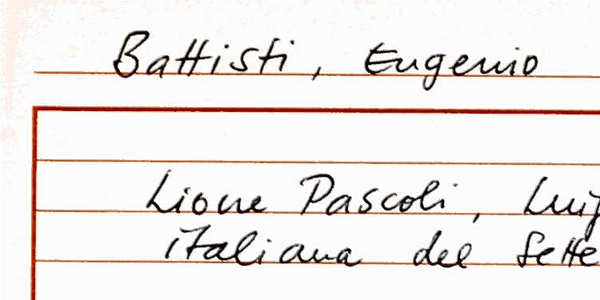 Battisti, Eugenio
Lione Pascoli, Luig
italiana del Sette